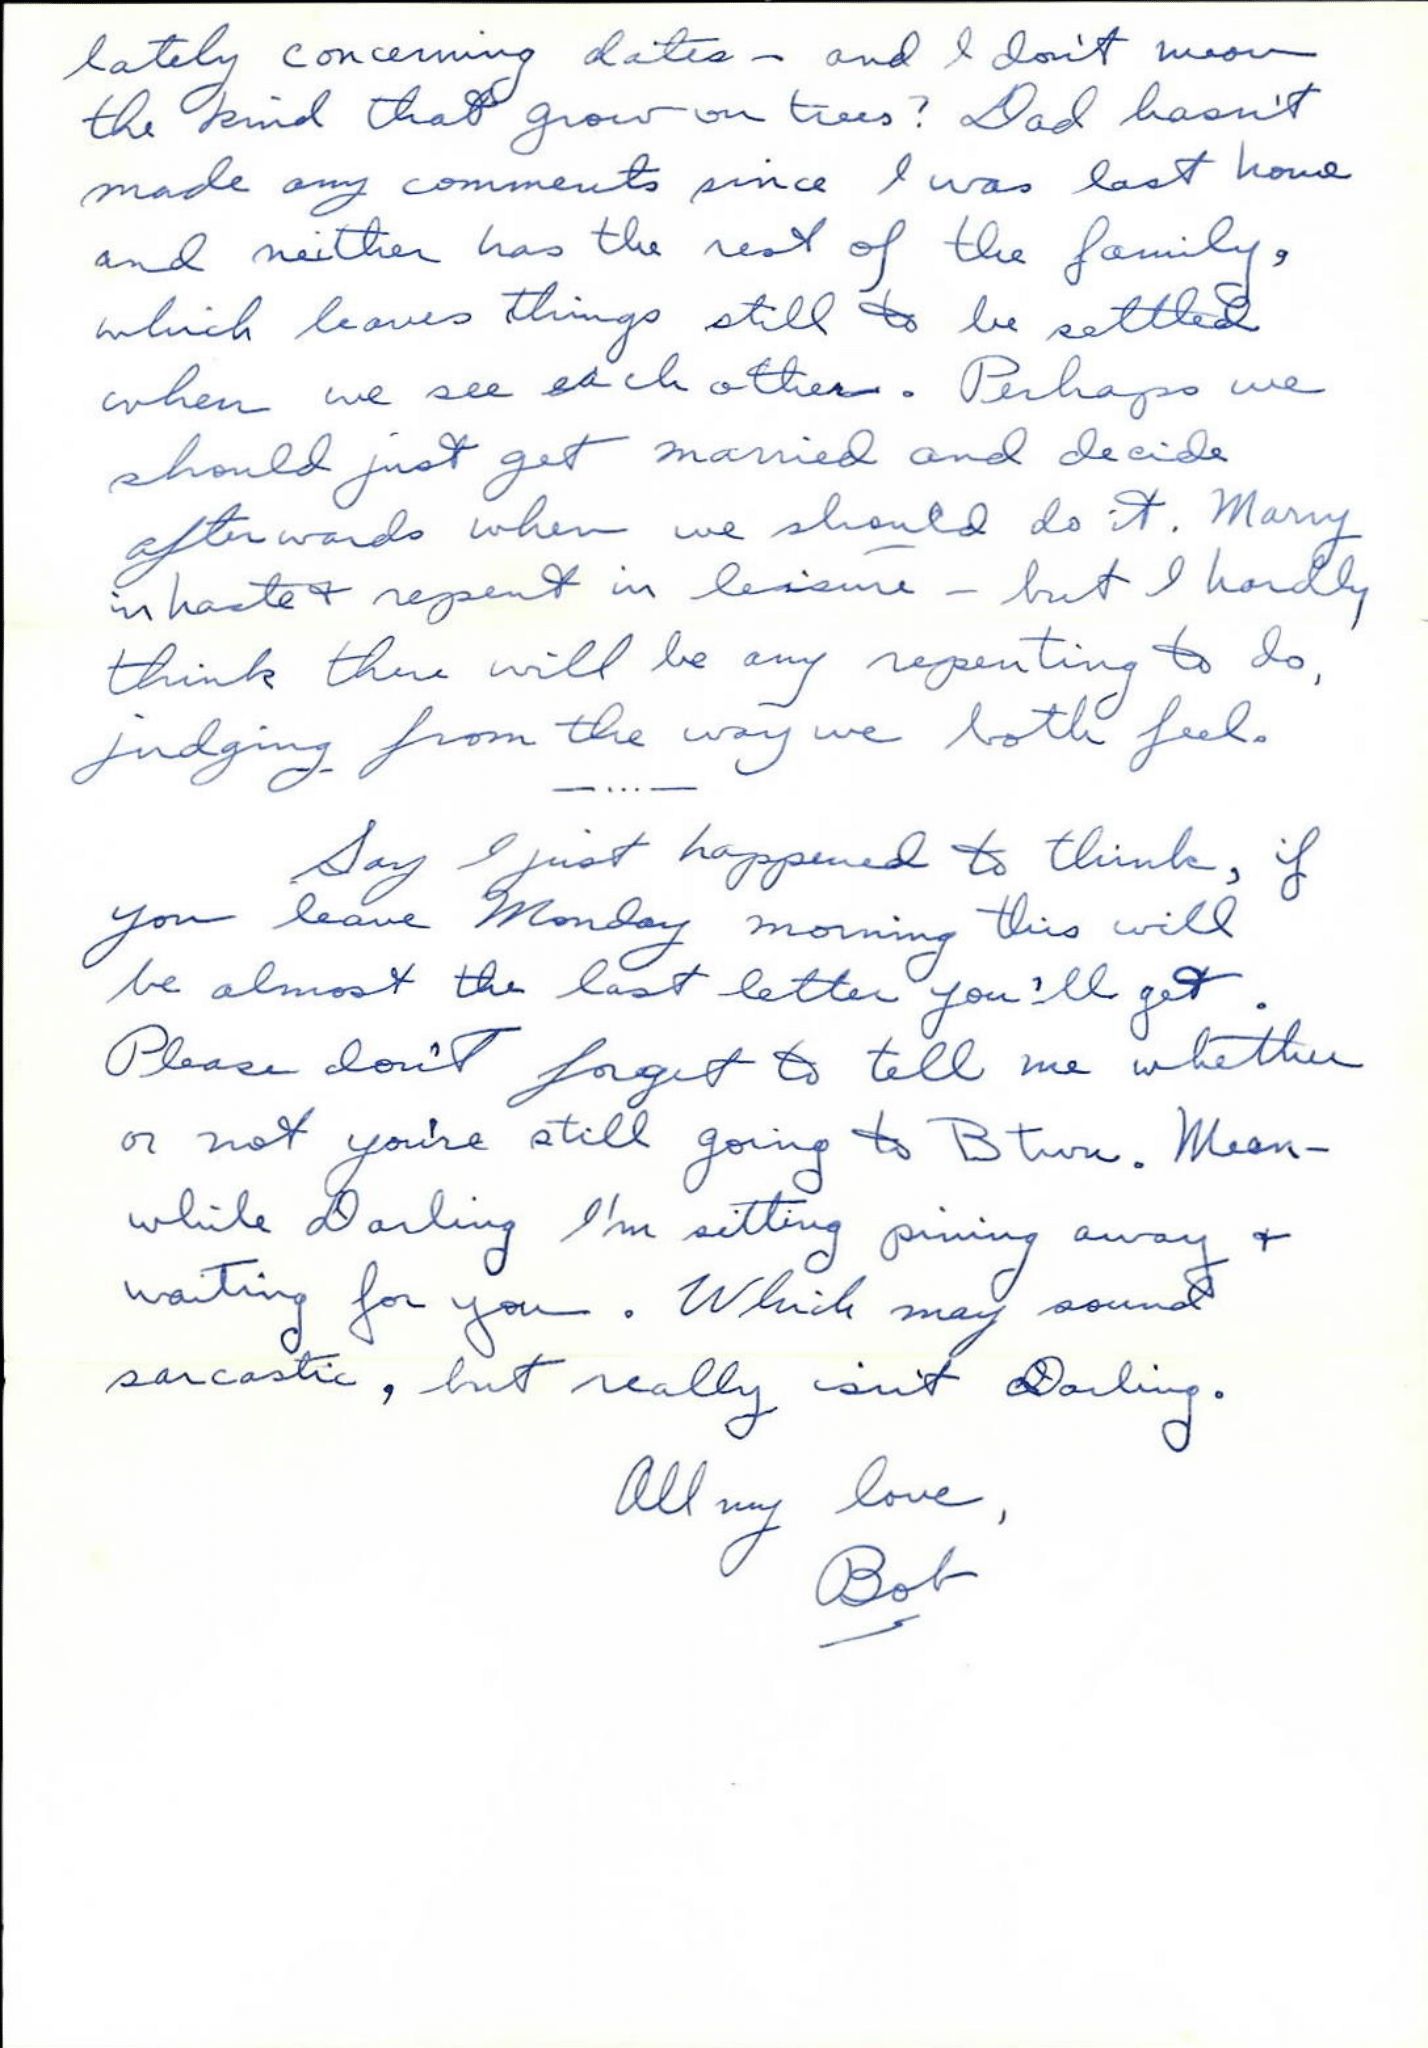 lately concerning dates - and I don't mean
the kind that grow on trees? Dad hasn't
made any comments since I was last home
and neither has the rest of the family,
which leaves things still to be settled
when we see each other. Perhaps we
should just get married and decide
afterwards when we should do it. Marry
in haste & repent in leisure - but I hardly
think there will be any repenting to do,
judging from the way we both feel.
—...—
Say I just happened to think, if
you leave Monday morning this will
be almost the last letter you'll get.
Please don't forget to tell me whether
or not you're still going to Btwn. Mean-
while Darling I'm sitting pining away &
waiting for you. Which may sound
sarcastic, but really isn't Darling.
All my love,
Bob